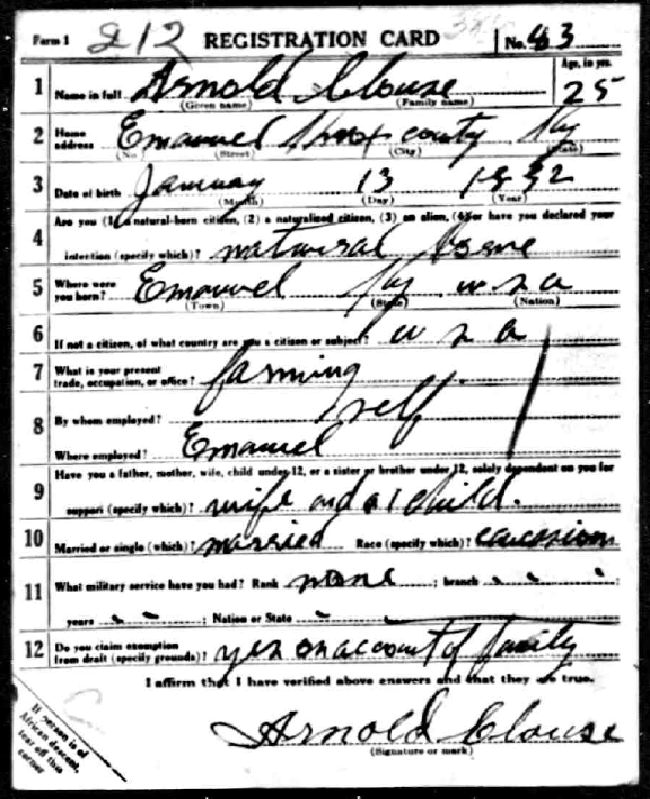 Form 1 212 REGISTRATION CARD No. 43
1 Name in full Arnold Clouse Age, in yrs. 25
(Given name) (Family name)
2 Home address Emanuel Knox county Ky
(No) (Street) (City) (State)
3 Date of birth January 13 1892
(Month) (Day) (Year)
4 Are you (1) a natural-born citizen, (2) a naturalized citizen, (3) an alien, (4) or have you declared your
intention (specify which)? natural borne
5 Where were you born? Emanuel Ky u s a
(Town) (State) (Nation)
6 If not a citizen, of what country are you a citizen or subject? u s a
7 What is your present trade, occupation, or office? farming
8 By whom employed? self
Where employed? Emanuel
9 Have you a father, mother, wife, child under 12, or a sister or brother under 12, solely dependent on you for
support (specify which)? wife and 1 child.
10 Married or single (which)? married Race (specify which)? caucasion
11 What military service have you had? Rank none ; branch " " ;
years " " ; Nation or State "
12 Do you claim exemption from draft (specify grounds)? yes on account of family
I affirm that I have verified above answers and that they are true.
Arnold Clouse
(Signature or mark)
If person is of
African descent,
tear off this
corner